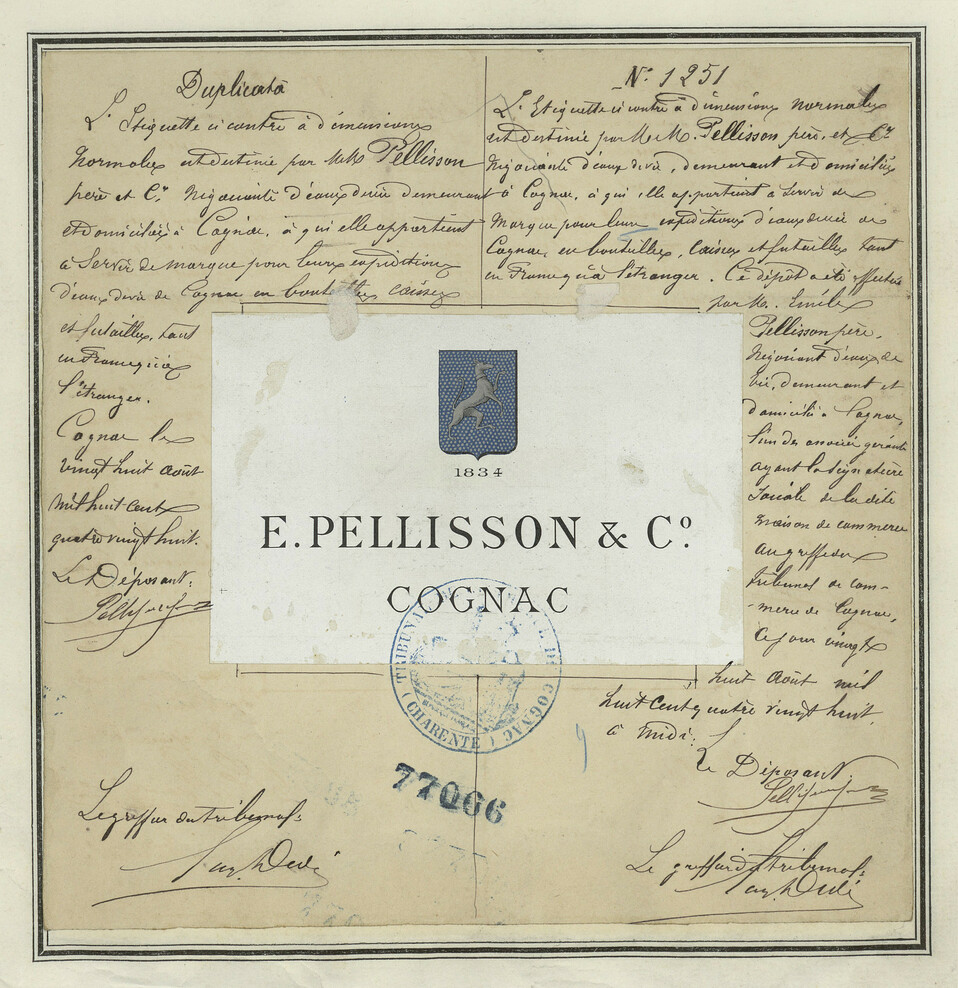 Duplicata
L'Etiquette ci contre à dimensions
Normales est destinée par MM Pellisson
père et Cie Négociants d'eaux de vie demeurant
et domiciliés à Cognac, à qui elle appartient
à Servir de marque pour leurs expéditions
d'eaux de vie de Cognac en bouteilles caisses
et futailles, tant
en France qu'à
l'étranger.
Cognac le
vingt huit Août
mil huit cent
quatre vingt huit.
Le Déposant:
Le greffier du tribunal:
No. 1251
L'Etiquette ci contre à dimensions normales
est destinée par M.M. Pellisson père, et Cie
Négociants d'eaux de vie, demeurant et domiciliés
à Cognac, à qui elle appartient à Servir de
Marque pour leurs expéditions d'eaux de vie de
Cognac, en bouteilles, caisses et futailles tant
en France qu'à l'étranger. Ce dépôt a été effectué
par M. Emile
Pellisson père,
Négociant d'eaux de
vie, demeurant et
domicilié à Cognac,
l'un des associés gérants
ayant la signature
Sociale de la dite
maison de commerce
au greffe du
tribunal de com-
-merce de Cognac,
ce jour vingt
huit Août mil
huit cent quatre vingt huit.
à midi:
Le Déposant.
Le greffier du tribunal:
1834
E. PELLISSON & Co.
COGNAC
TRIBUNAL DE COGNAC
(CHARENTE)
77066